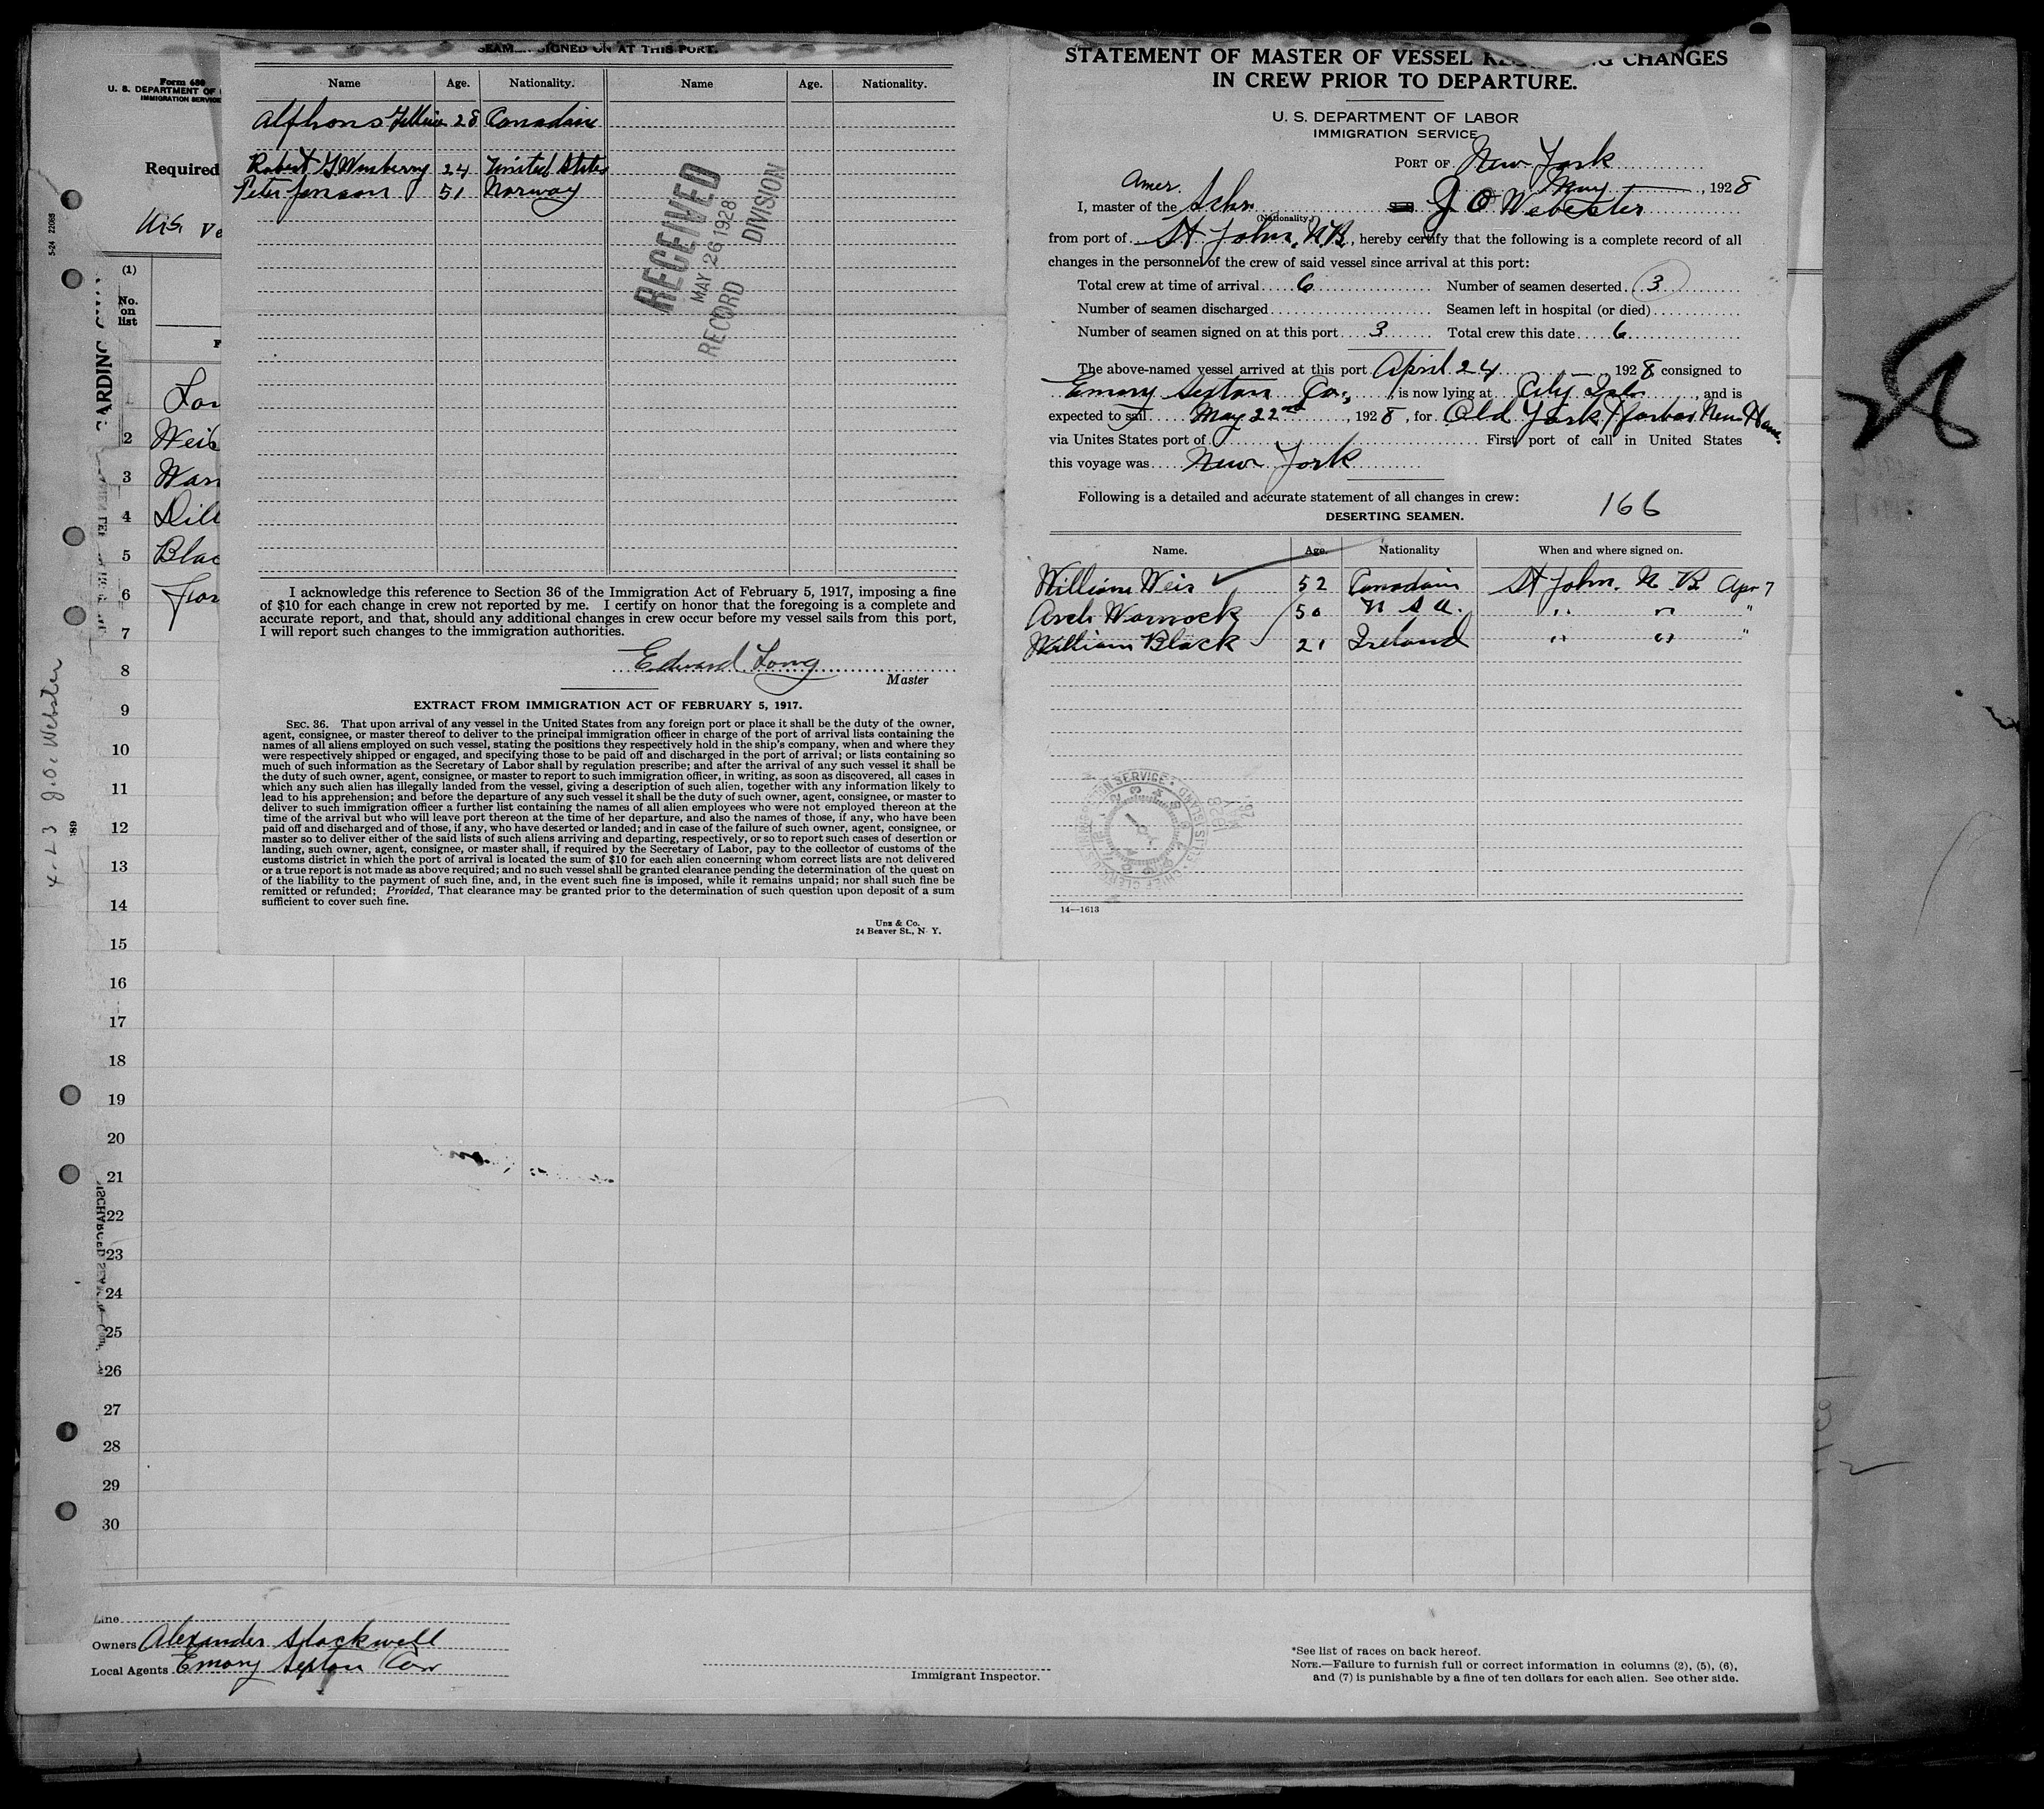 Form 689
U. S. DEPARTMENT OF
IMMIGRATION SERVICE
Required
U.S. Ve
5-24 22088
(1)
No. on list
Lon
2 Weis
3 Warn
4 Dill
5 Blac
6
7
8
9
10
11
12
13
14
15
16
17
18
19
20
21
22
23
24
25
26
27
28
29
30
4-23 J.O. Webster
SIGNED ON AT THIS PORT.
Name Age. Nationality. Name Age. Nationality.
Alfhons 28 Canadian
Robert G Wineberry 24 United States
Peter Jonson 51 Norway
RECEIVED
MAY 26 1928
RECORD DIVISION
I acknowledge this reference to Section 36 of the Immigration Act of February 5, 1917, imposing a fine
of $10 for each change in crew not reported by me. I certify on honor that the foregoing is a complete and
accurate report, and that, should any additional changes in crew occur before my vessel sails from this port,
I will report such changes to the immigration authorities.
Edward Long
Master
EXTRACT FROM IMMIGRATION ACT OF FEBRUARY 5, 1917.
SEC. 36. That upon arrival of any vessel in the United States from any foreign port or place it shall be the duty of the owner,
agent, consignee, or master thereof to deliver to the principal immigration officer in charge of the port of arrival lists containing the
names of all aliens employed on such vessel, stating the positions they respectively hold in the ship's company, when and where they
were respectively shipped or engaged, and specifying those to be paid off and discharged in the port of arrival; or lists containing so
much of such information as the Secretary of Labor shall by regulation prescribe; and after the arrival of any such vessel it shall be
the duty of such owner, agent, consignee, or master to report to such immigration officer, in writing, as soon as discovered, all cases in
which any such alien has illegally landed from the vessel, giving a description of such alien, together with any information likely to
lead to his apprehension; and before the departure of any such vessel it shall be the duty of such owner, agent, consignee, or master to
deliver to such immigration officer a further list containing the names of all alien employees who were not employed thereon at the
time of the arrival but who will leave port thereon at the time of her departure, and also the names of those, if any, who have been
paid off and discharged and of those, if any, who have deserted or landed; and in case of the failure of such owner, agent, consignee, or
master so to deliver either of the said lists of such aliens arriving and departing, respectively, or so to report such cases of desertion or
landing, such owner, agent, consignee, or master shall, if required by the Secretary of Labor, pay to the collector of customs of the
customs district in which the port of arrival is located the sum of $10 for each alien concerning whom correct lists are not delivered
or a true report is not made as above required; and no such vessel shall be granted clearance pending the determination of the quest on
of the liability to the payment of such fine, and, in the event such fine is imposed, while it remains unpaid; nor shall such fine be
remitted or refunded; Provided, That clearance may be granted prior to the determination of such question upon deposit of a sum
sufficient to cover such fine.
UDE & CO.
24 Beaver St., N. Y.
STATEMENT OF MASTER OF VESSEL CHANGES
IN CREW PRIOR TO DEPARTURE.
U. S. DEPARTMENT OF LABOR
IMMIGRATION SERVICE
PORT OF New York
May, 1928
Amer.
I, master of the Schr J O Webster
(Nationality.)
from port of St John, N.B., hereby certify that the following is a complete record of all
changes in the personnel of the crew of said vessel since arrival at this port:
Total crew at time of arrival 6 Number of seamen deserted 3
Number of seamen discharged Seamen left in hospital (or died)
Number of seamen signed on at this port 3 Total crew this date 6
The above-named vessel arrived at this port April 24, 1928 consigned to
Emory Sexton Co., is now lying at City Isln, and is
expected to sail May 22nd, 1928, for Old York Harbor New Hane.
via Unites States port of First port of call in United States
this voyage was New York
Following is a detailed and accurate statement of all changes in crew:
166
DESERTING SEAMEN.
Name. Age. Nationality When and where signed on.
William Weis 52 Canadain St John. N B Apr 7
Arch Warnock 50 U S A. " " "
William Black 21 Ireland " " "
14—1613
Line
Owners Alexander Stackwell
Local Agents Emory Sexton Co
Immigrant Inspector.
*See list of races on back hereof.
NOTE.—Failure to furnish full or correct information in columns (2), (5), (6),
and (7) is punishable by a fine of ten dollars for each alien. See other side.